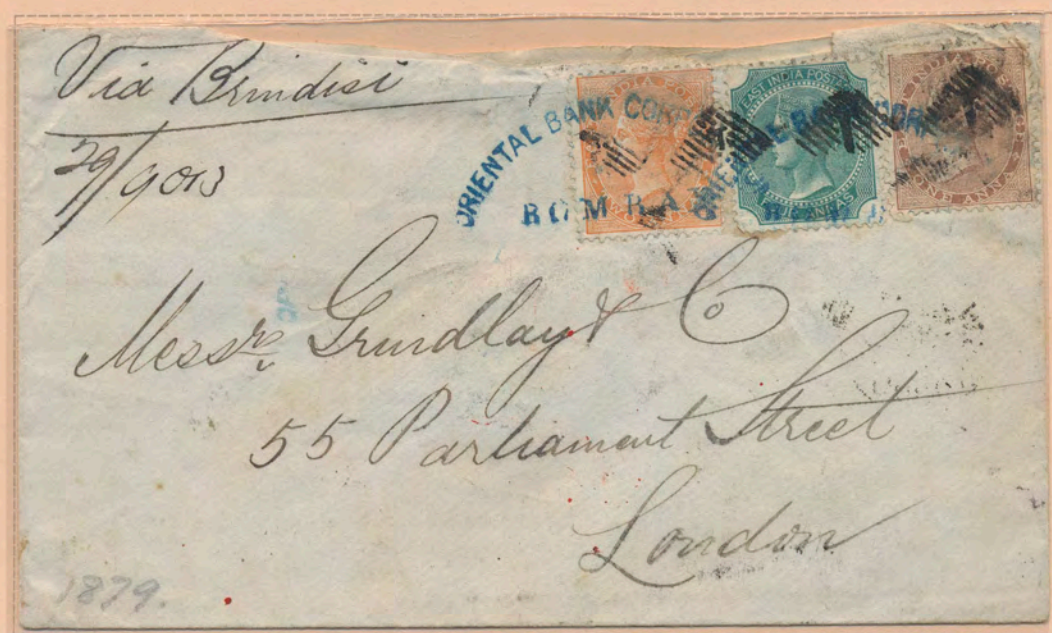 Via Brindisi
29/9013
ORIENTAL BANK CORP
BOMBA
EAST INDIA POSTAGE
ANNAS
ONE ANNA
Messrs Grindlay & Co
55 Parliament Street
London
1879.